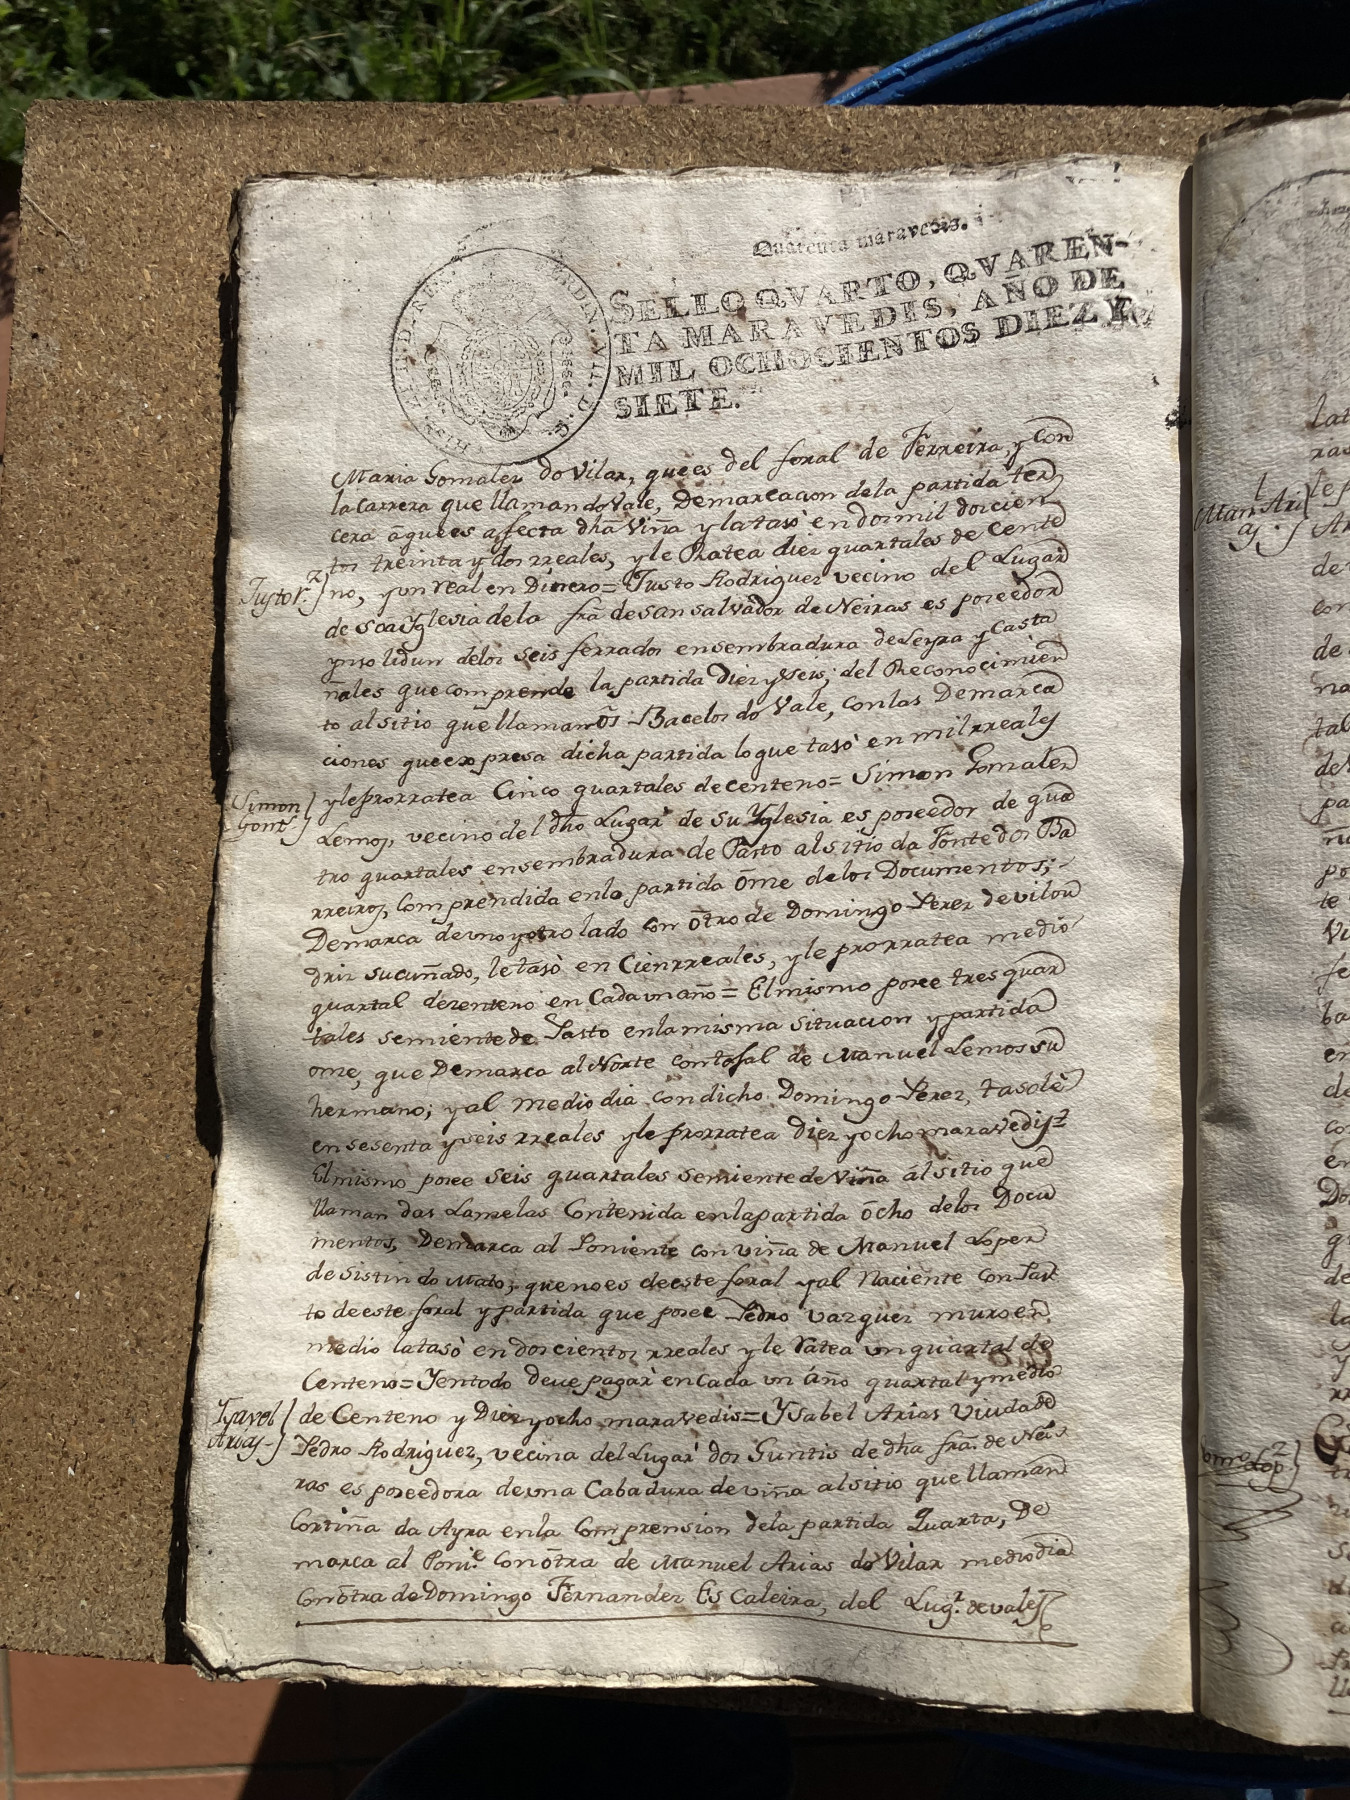 Quarenta maravedis.
SELLO QVARTO, QVAREN-
TA MARAVEDIS, AÑO DE
MIL OCHOCIENTOS DIEZ Y
SIETE.
FERDIN. VII. D. G.
HISP.
Maria Gomalez do Vilar, que es del foral de Ferreira, y con
la Carrera que llaman do Vale, Demarcacion dela partida ter
cera á que es afecta dhã Viña y la tasó en dos mil docien
tos treinta y dos rreales, y le Ratea diez quartales de Cente
Justo R.z
no, y un real en Dinero = Justo Rodriguez vecino del Lugar
de Soa Yglesia dela frã de San Salvador de Neiras es poseedor
ynsolidun delos seis ferrados en sembradura de Leyra y Casta
ñales que comprende la partida Diez y Seis; del Reconocimien
to al sitio que llaman ôs Bacelos do Vale, con las Demarca
ciones que expresa dicha partida lo que tasó en mil rreales
y le prorratea Cinco quartales de centeno = Simon Gomalez
Simon
Gonz.
Lemos, vecino del dhô Lugar de Su Yglesia es poseedor de qua
tro quartales en sembradura de Pasto al sitio da Fonte dos Ba
rreiros, Comprendida en la partida ôme de los Documentos;
Demarca de uno y otro lado con ôtro de Domingo Perez de vilou
driz su cuñado, le tasó en Cien rreales, y le prorratea medio
quartal de zenteno en Cada un año = El mismo posee tres quar
tales semiente de Pasto en la misma situacion y partida
ome, que Demarca al Norte con tojal de Manuel Lemos su
hermano; y al medio dia con dicho Domingo Perez, tasolè
en sesenta y seis rreales y le prorratea Diez y ocho maravedis =
El mismo posee seis quartales semiente de Viña ál sitio que
llaman das Lamelas Contenida en la partida ôcho de los Docu
mentos, Demarca al Poniente con viña de Manuel Lopez
de Sistin do Mato; que no es de este foral y al Naciente con Pas
to de este foral y partida que posee Pedro Vazquez muro en
medio la tasò en dos cientos rreales y le ratea un quartal de
Centeno = Y en todo deve pagàr en Cada un año quartal y medio
Ysavel
Arias
de Centeno y Diez y ocho maravedis = Ysabel Arias Viuda de
Pedro Rodriguez, vecina del Lugar dos Guntis de dhã frã. de Nei
ras es poseedora de una Cabadura de viña al sitio que llaman
Cortiña da Ayra en la Comprension dela partida Quarta, De
marca al Poni.e con ôtra de Manuel Arias do Vilar medio dia
con ôtra de Domingo Fernandez Es Caleira, del Lug.r de vales